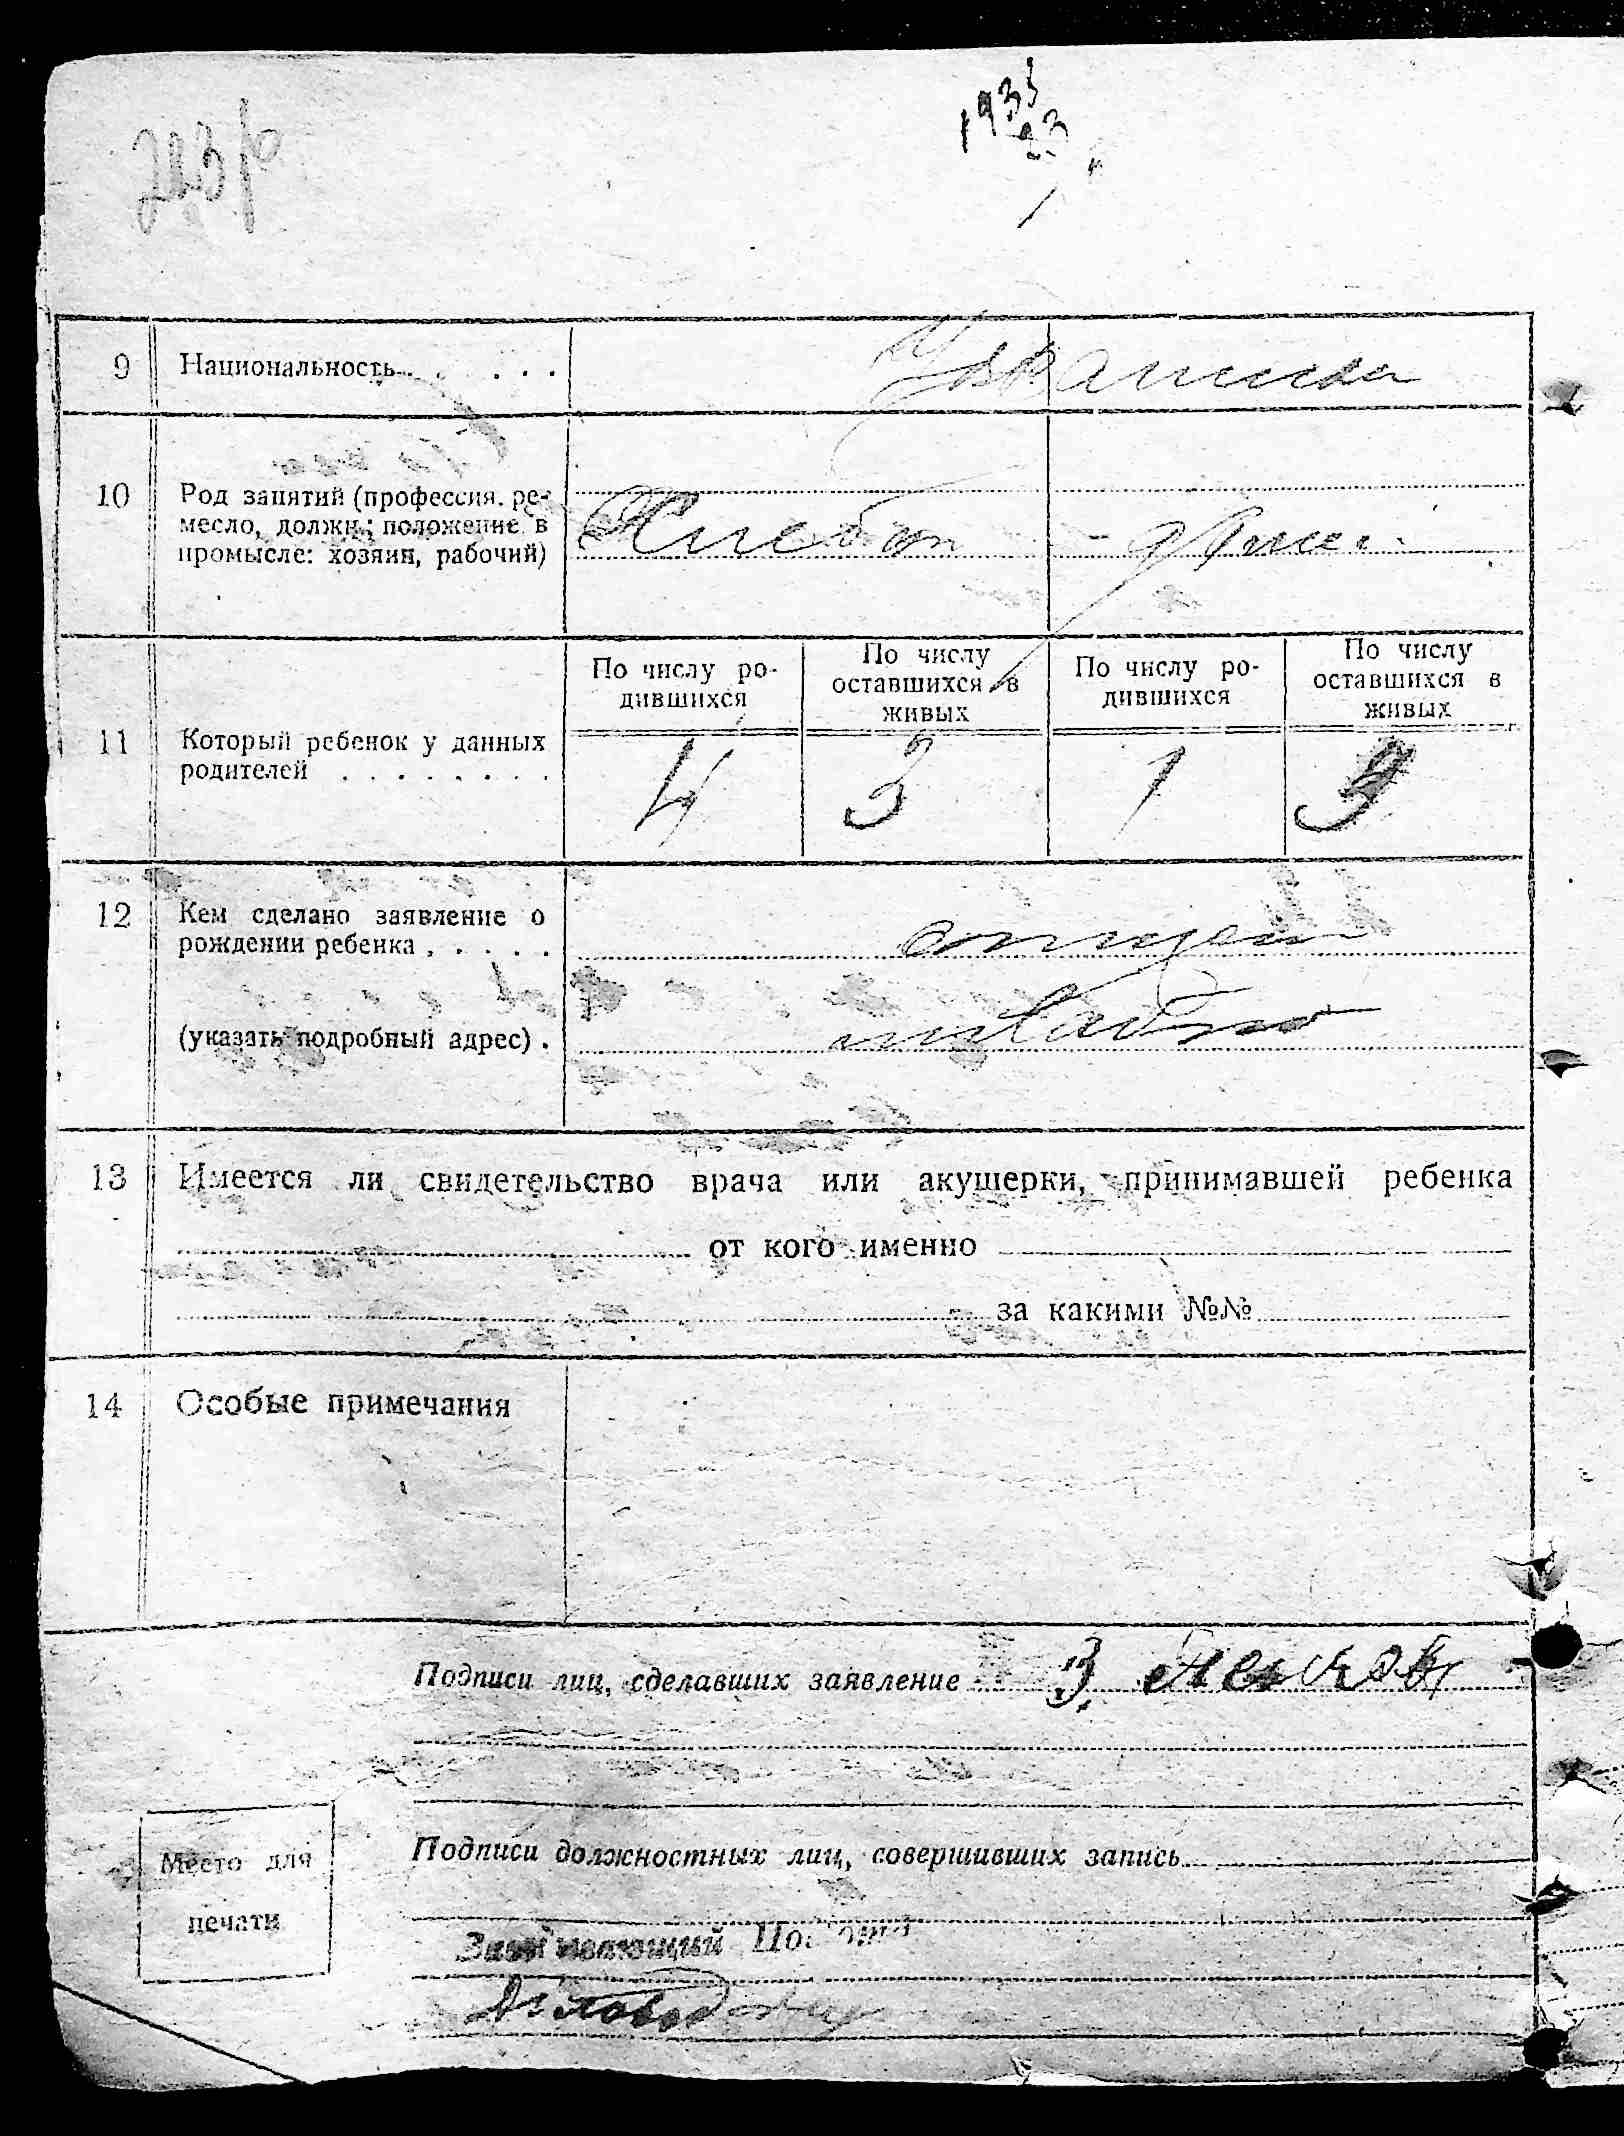 1933
23
9 Национальность . . . . . .
10 Род занятий (профессия. ре-
месло, должн.; положение в
промысле: хозяин, рабочий)
Хлебоп
11 Который ребенок у данных
родителей . . . . . . . .
По числу ро-
дившихся
По числу
оставшихся в
живых
По числу ро-
дившихся
По числу
оставшихся в
живых
4 3 1 3
12 Кем сделано заявление о
рождении ребенка . . . . .
отцем
(указать подробный адрес) .
13 Имеется ли свидетельство врача или акушерки, принимавшей ребенка
от кого именно
за какими №№
14 Особые примечания
Подписи лиц, сделавших заявление
Место для
печати
Подписи должностных лиц, совершивших запись